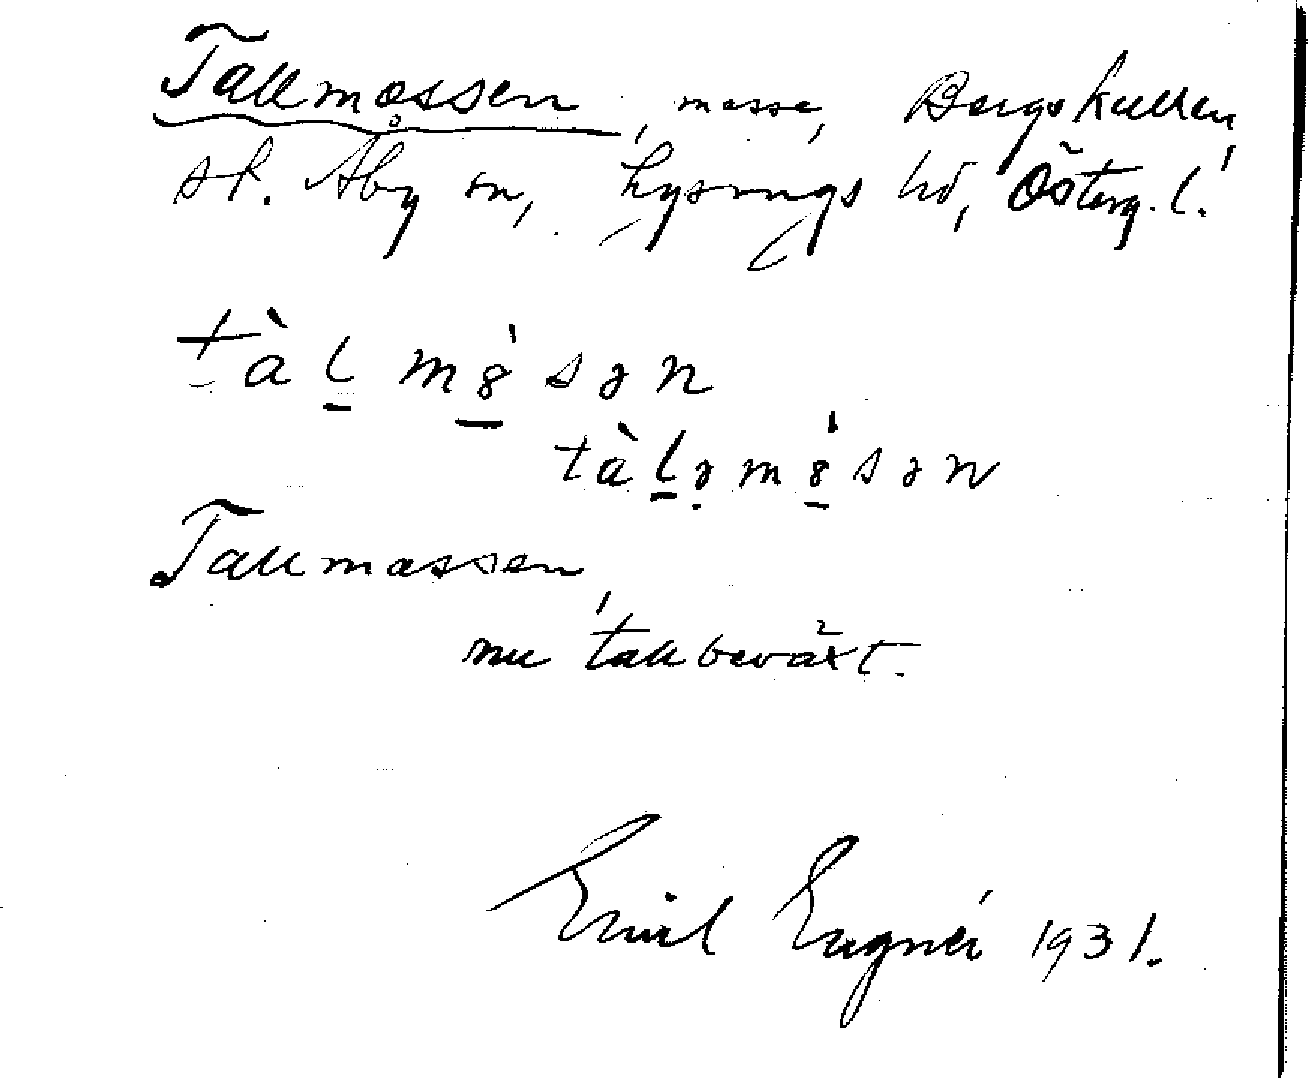 Tallmossen, mosse, Bergskullen,
sk. Åby sn, Lysings hd, Österg. l.
tàl mȣ̀sən
tàləmȣ̀sən
Tallmossen,
nu tallbeväxt.
Emil Eugnér 1931.